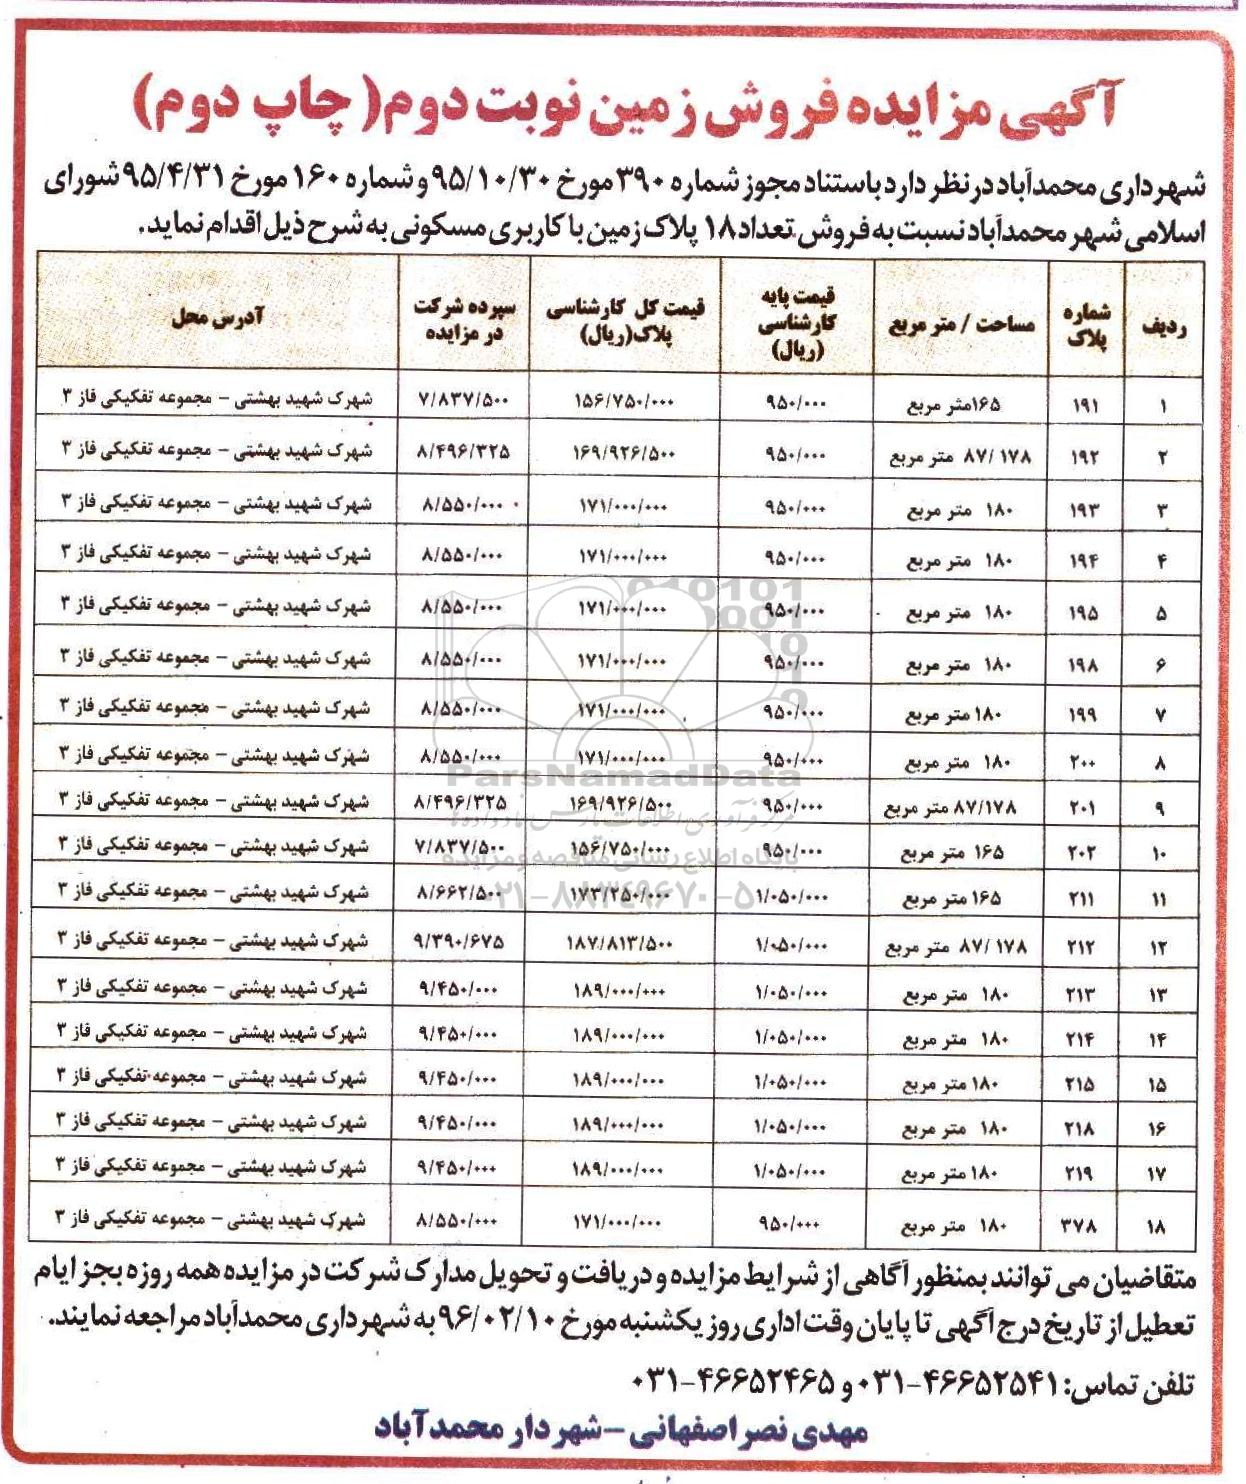 آگهی مزایده فروش زمین نوبت دوم( چاپ دوم)
شهرداری محمدآباد در نظر دارد باستناد مجوز شماره ۳۹۰ مورخ ۹۵/۱۰/۳۰ و شماره ۱۶۰ مورخ ۹۵/۴/۳۱ شورای
اسلامی شهر محمدآباد نسبت به فروش تعداد ۱۸ پلاک زمین با کاربری مسکونی به شرح ذیل اقدام نماید.
ردیف شماره پلاک مساحت / متر مربع قیمت پایه کارشناسی (ریال) قیمت کل کارشناسی پلاک(ریال) سپرده شرکت در مزایده آدرس محل
۱ ۱۹۱ ۱۶۵متر مربع ۹۵۰/۰۰۰ ۱۵۶/۷۵۰/۰۰۰ ۷/۸۳۷/۵۰۰ شهرک شهید بهشتی – مجموعه تفکیکی فاز ۳
۲ ۱۹۲ ۸۷/۱۷۸ متر مربع ۹۵۰/۰۰۰ ۱۶۹/۹۲۶/۵۰۰ ۸/۴۹۶/۳۲۵ شهرک شهید بهشتی – مجموعه تفکیکی فاز ۳
۳ ۱۹۳ ۱۸۰ متر مربع ۹۵۰/۰۰۰ ۱۷۱/۰۰۰/۰۰۰ ۸/۵۵۰/۰۰۰ شهرک شهید بهشتی – مجموعه تفکیکی فاز ۳
۴ ۱۹۴ ۱۸۰ متر مربع ۹۵۰/۰۰۰ ۱۷۱/۰۰۰/۰۰۰ ۸/۵۵۰/۰۰۰ شهرک شهید بهشتی – مجموعه تفکیکی فاز ۳
۵ ۱۹۵ ۱۸۰ متر مربع ۹۵۰/۰۰۰ ۱۷۱/۰۰۰/۰۰۰ ۸/۵۵۰/۰۰۰ شهرک شهید بهشتی – مجموعه تفکیکی فاز ۳
۶ ۱۹۸ ۱۸۰ متر مربع ۹۵۰/۰۰۰ ۱۷۱/۰۰۰/۰۰۰ ۸/۵۵۰/۰۰۰ شهرک شهید بهشتی – مجموعه تفکیکی فاز ۳
۷ ۱۹۹ ۱۸۰ متر مربع ۹۵۰/۰۰۰ ۱۷۱/۰۰۰/۰۰۰ ۸/۵۵۰/۰۰۰ شهرک شهید بهشتی – مجموعه تفکیکی فاز ۳
۸ ۲۰۰ ۱۸۰ متر مربع ۹۵۰/۰۰۰ ۱۷۱/۰۰۰/۰۰۰ ۸/۵۵۰/۰۰۰ شهرک شهید بهشتی – مجموعه تفکیکی فاز ۳
۹ ۲۰۱ ۸۷/۱۷۸ متر مربع ۹۵۰/۰۰۰ ۱۶۹/۹۲۶/۵۰۰ ۸/۴۹۶/۳۲۵ شهرک شهید بهشتی – مجموعه تفکیکی فاز ۳
۱۰ ۲۰۲ ۱۶۵ متر مربع ۹۵۰/۰۰۰ ۱۵۶/۷۵۰/۰۰۰ ۷/۸۳۷/۵۰۰ شهرک شهید بهشتی – مجموعه تفکیکی فاز ۳
۱۱ ۲۱۱ ۱۶۵ متر مربع ۱/۰۵۰/۰۰۰ ۱۷۳/۲۵۰/۰۰۰ ۸/۶۶۲/۵۰۰ شهرک شهید بهشتی – مجموعه تفکیکی فاز ۳
۱۲ ۲۱۲ ۸۷/۱۷۸ متر مربع ۱/۰۵۰/۰۰۰ ۱۸۷/۸۱۳/۵۰۰ ۹/۳۹۰/۶۷۵ شهرک شهید بهشتی – مجموعه تفکیکی فاز ۳
۱۳ ۲۱۳ ۱۸۰ متر مربع ۱/۰۵۰/۰۰۰ ۱۸۹/۰۰۰/۰۰۰ ۹/۴۵۰/۰۰۰ شهرک شهید بهشتی – مجموعه تفکیکی فاز ۳
۱۴ ۲۱۴ ۱۸۰ متر مربع ۱/۰۵۰/۰۰۰ ۱۸۹/۰۰۰/۰۰۰ ۹/۴۵۰/۰۰۰ شهرک شهید بهشتی – مجموعه تفکیکی فاز ۳
۱۵ ۲۱۵ ۱۸۰ متر مربع ۱/۰۵۰/۰۰۰ ۱۸۹/۰۰۰/۰۰۰ ۹/۴۵۰/۰۰۰ شهرک شهید بهشتی – مجموعه تفکیکی فاز ۳
۱۶ ۲۱۸ ۱۸۰ متر مربع ۱/۰۵۰/۰۰۰ ۱۸۹/۰۰۰/۰۰۰ ۹/۴۵۰/۰۰۰ شهرک شهید بهشتی – مجموعه تفکیکی فاز ۳
۱۷ ۲۱۹ ۱۸۰ متر مربع ۱/۰۵۰/۰۰۰ ۱۸۹/۰۰۰/۰۰۰ ۹/۴۵۰/۰۰۰ شهرک شهید بهشتی – مجموعه تفکیکی فاز ۳
۱۸ ۳۷۸ ۱۸۰ متر مربع ۹۵۰/۰۰۰ ۱۷۱/۰۰۰/۰۰۰ ۸/۵۵۰/۰۰۰ شهرک شهید بهشتی – مجموعه تفکیکی فاز ۳
ParsNamadData
پایگاه اطلاع رسانی مناقصه و مزایده
۰۲۱-۸۸۳۴۹۶۷۰-۵
متقاضیان می توانند بمنظور آگاهی از شرایط مزایده و دریافت و تحویل مدارک شرکت در مزایده همه روزه بجز ایام
تعطیل از تاریخ درج آگهی تا پایان وقت اداری روز یکشنبه مورخ ۹۶/۰۲/۱۰ به شهرداری محمدآباد مراجعه نمایند.
تلفن تماس: ۴۶۶۵۲۵۴۱-۰۳۱ و ۴۶۶۵۲۴۶۵-۰۳۱
مهدی نصراصفهانی – شهردار محمدآباد